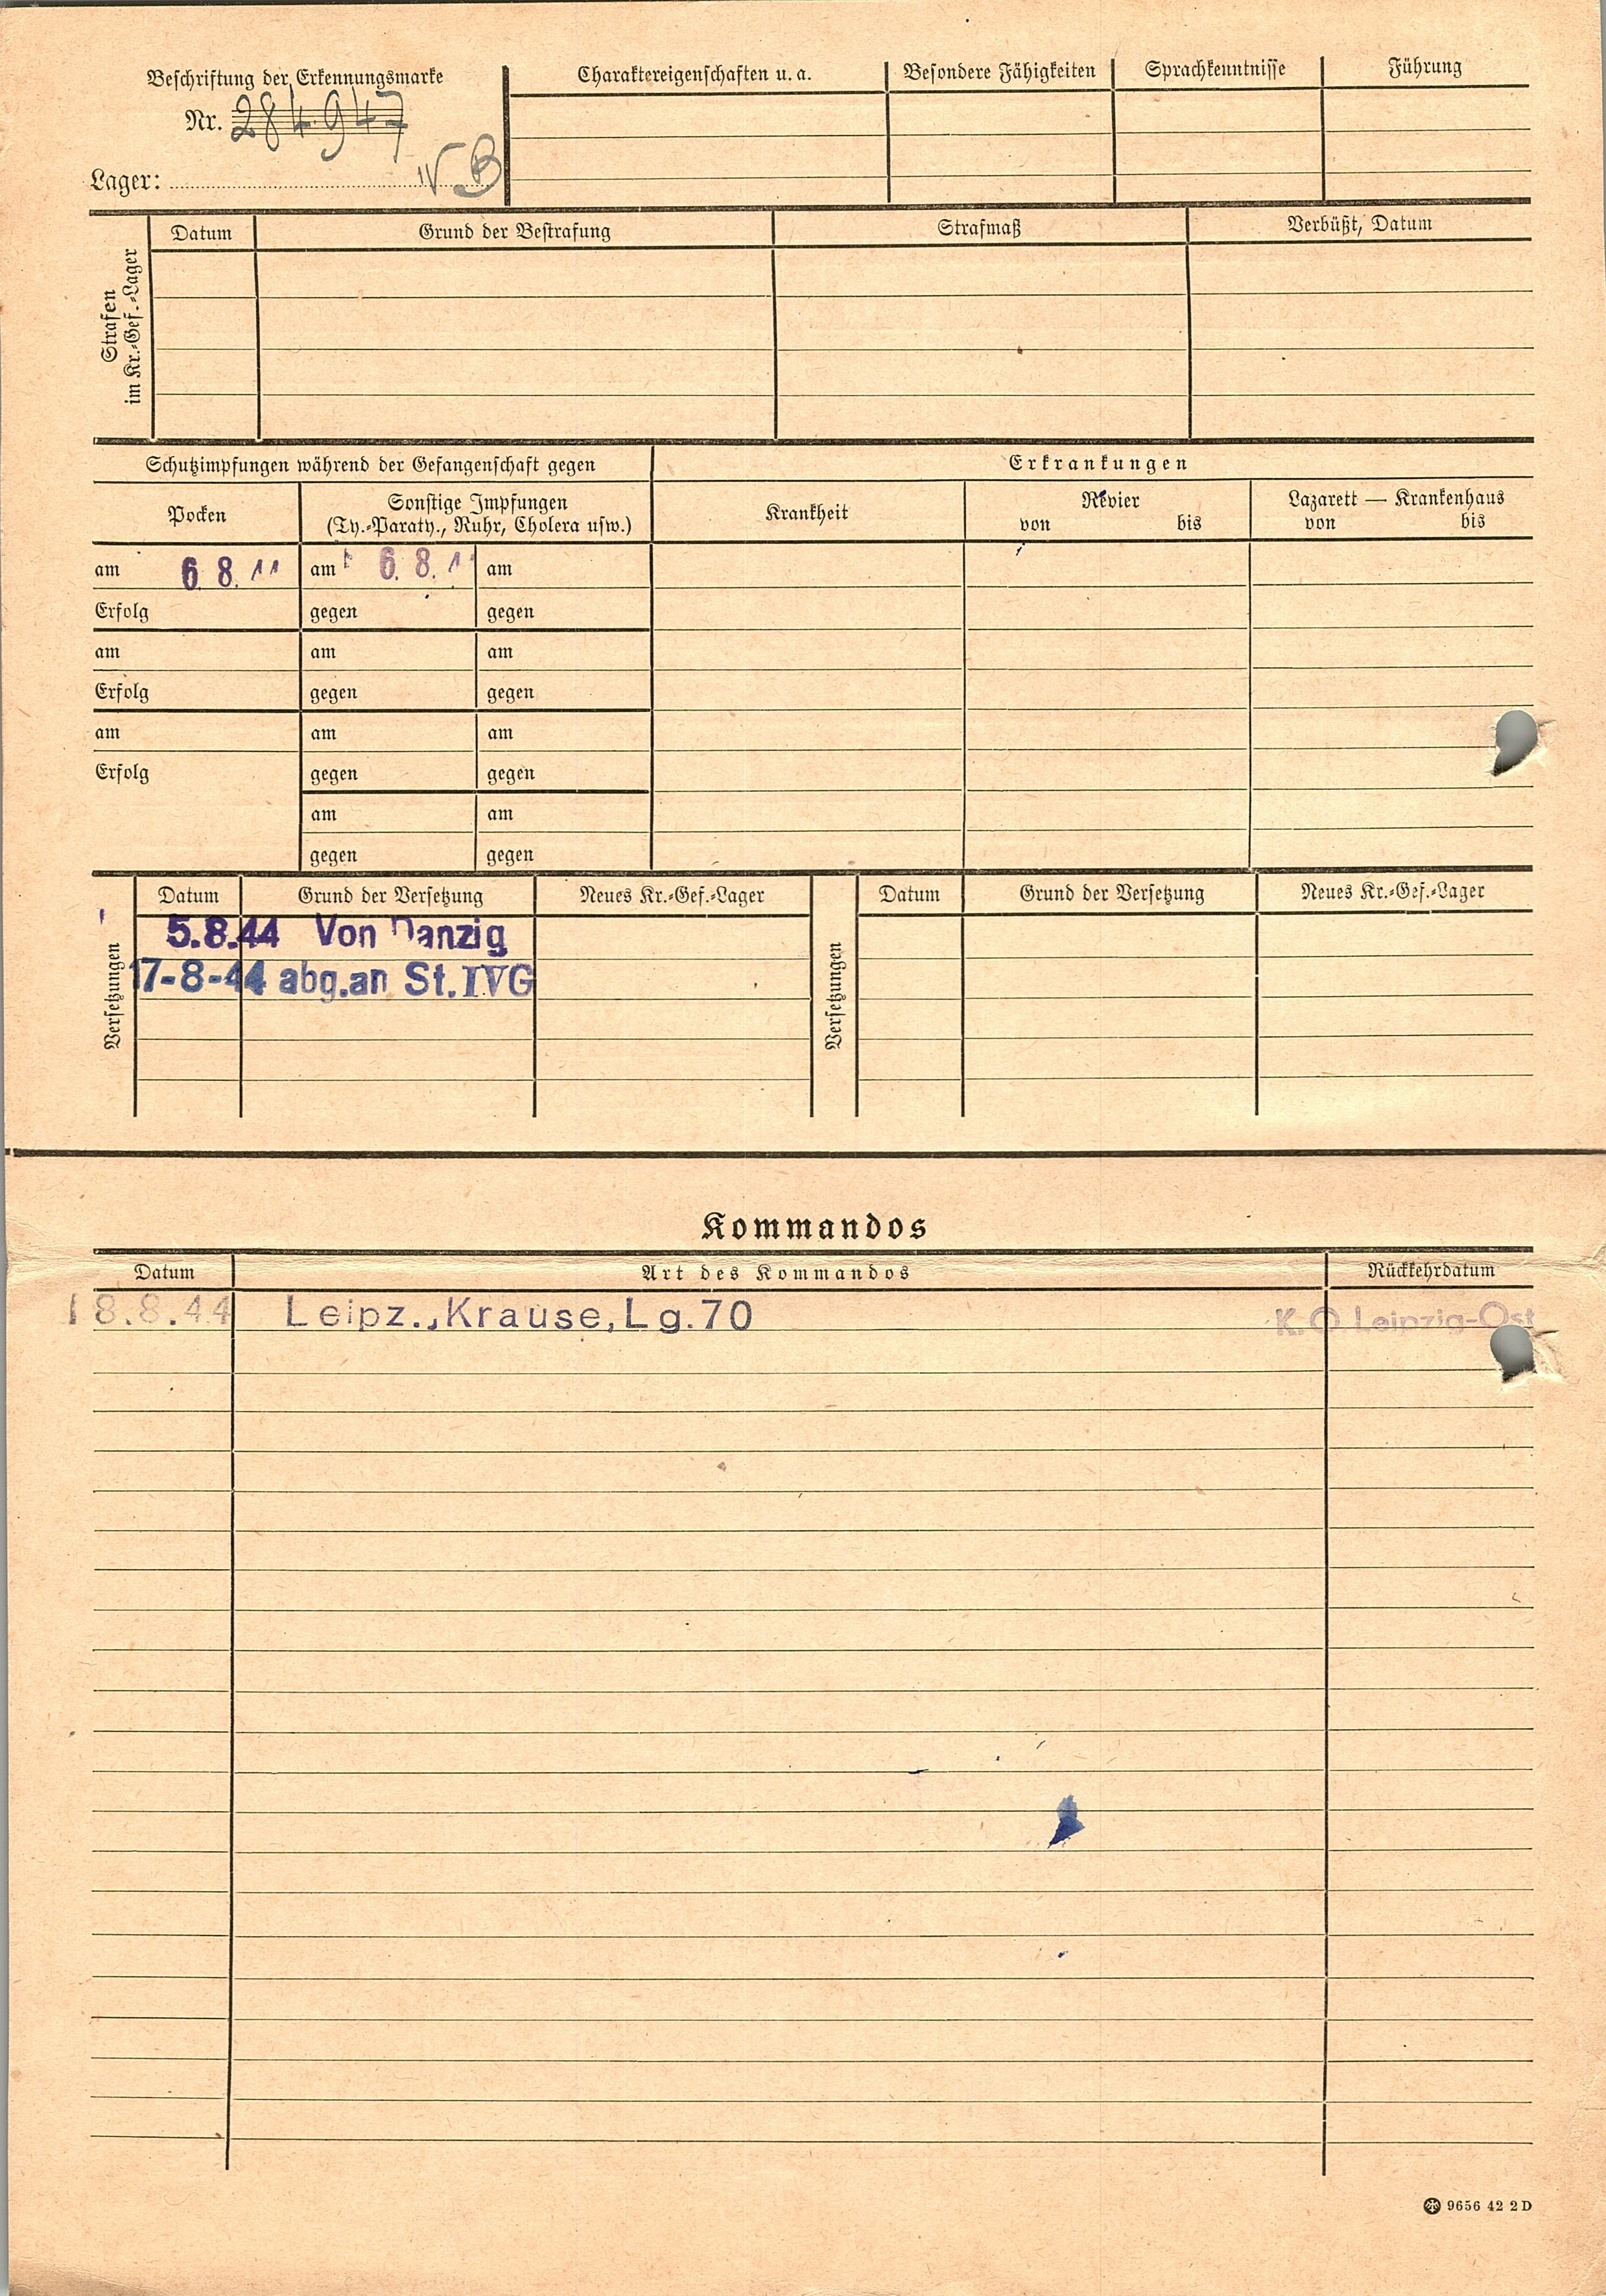 Beschriftung der Erkennungsmarke
Nr. 284947
Lager: IV B
Charaktereigenschaften u. a. Besondere Fähigkeiten Sprachkenntnisse Führung
Strafen
im Kr.-Gef.-Lager
Datum Grund der Bestrafung Strafmaß Verbüßt, Datum
Schutzimpfungen während der Gefangenschaft gegen Erkrankungen
Pocken Sonstige Impfungen
(Ty.-Paraty., Ruhr, Cholera usw.)
Krankheit Revier
von bis
Lazarett — Krankenhaus
von bis
am 6. 8. am 6. 8. am
Erfolg gegen gegen
am am am
Erfolg gegen gegen
am am am
Erfolg gegen gegen
am am
gegen gegen
Versetzungen
Datum Grund der Versetzung Neues Kr.-Gef.-Lager
5.8.44 Von Danzig
17-8-44 abg.an St. IVG
Versetzungen
Datum Grund der Versetzung Neues Kr.-Gef.-Lager
Kommandos
Datum Art des Kommandos Rückkehrdatum
18.8.44 Leipz.,Krause,Lg.70 K.O Leipzig-Ost
9656 42 2D